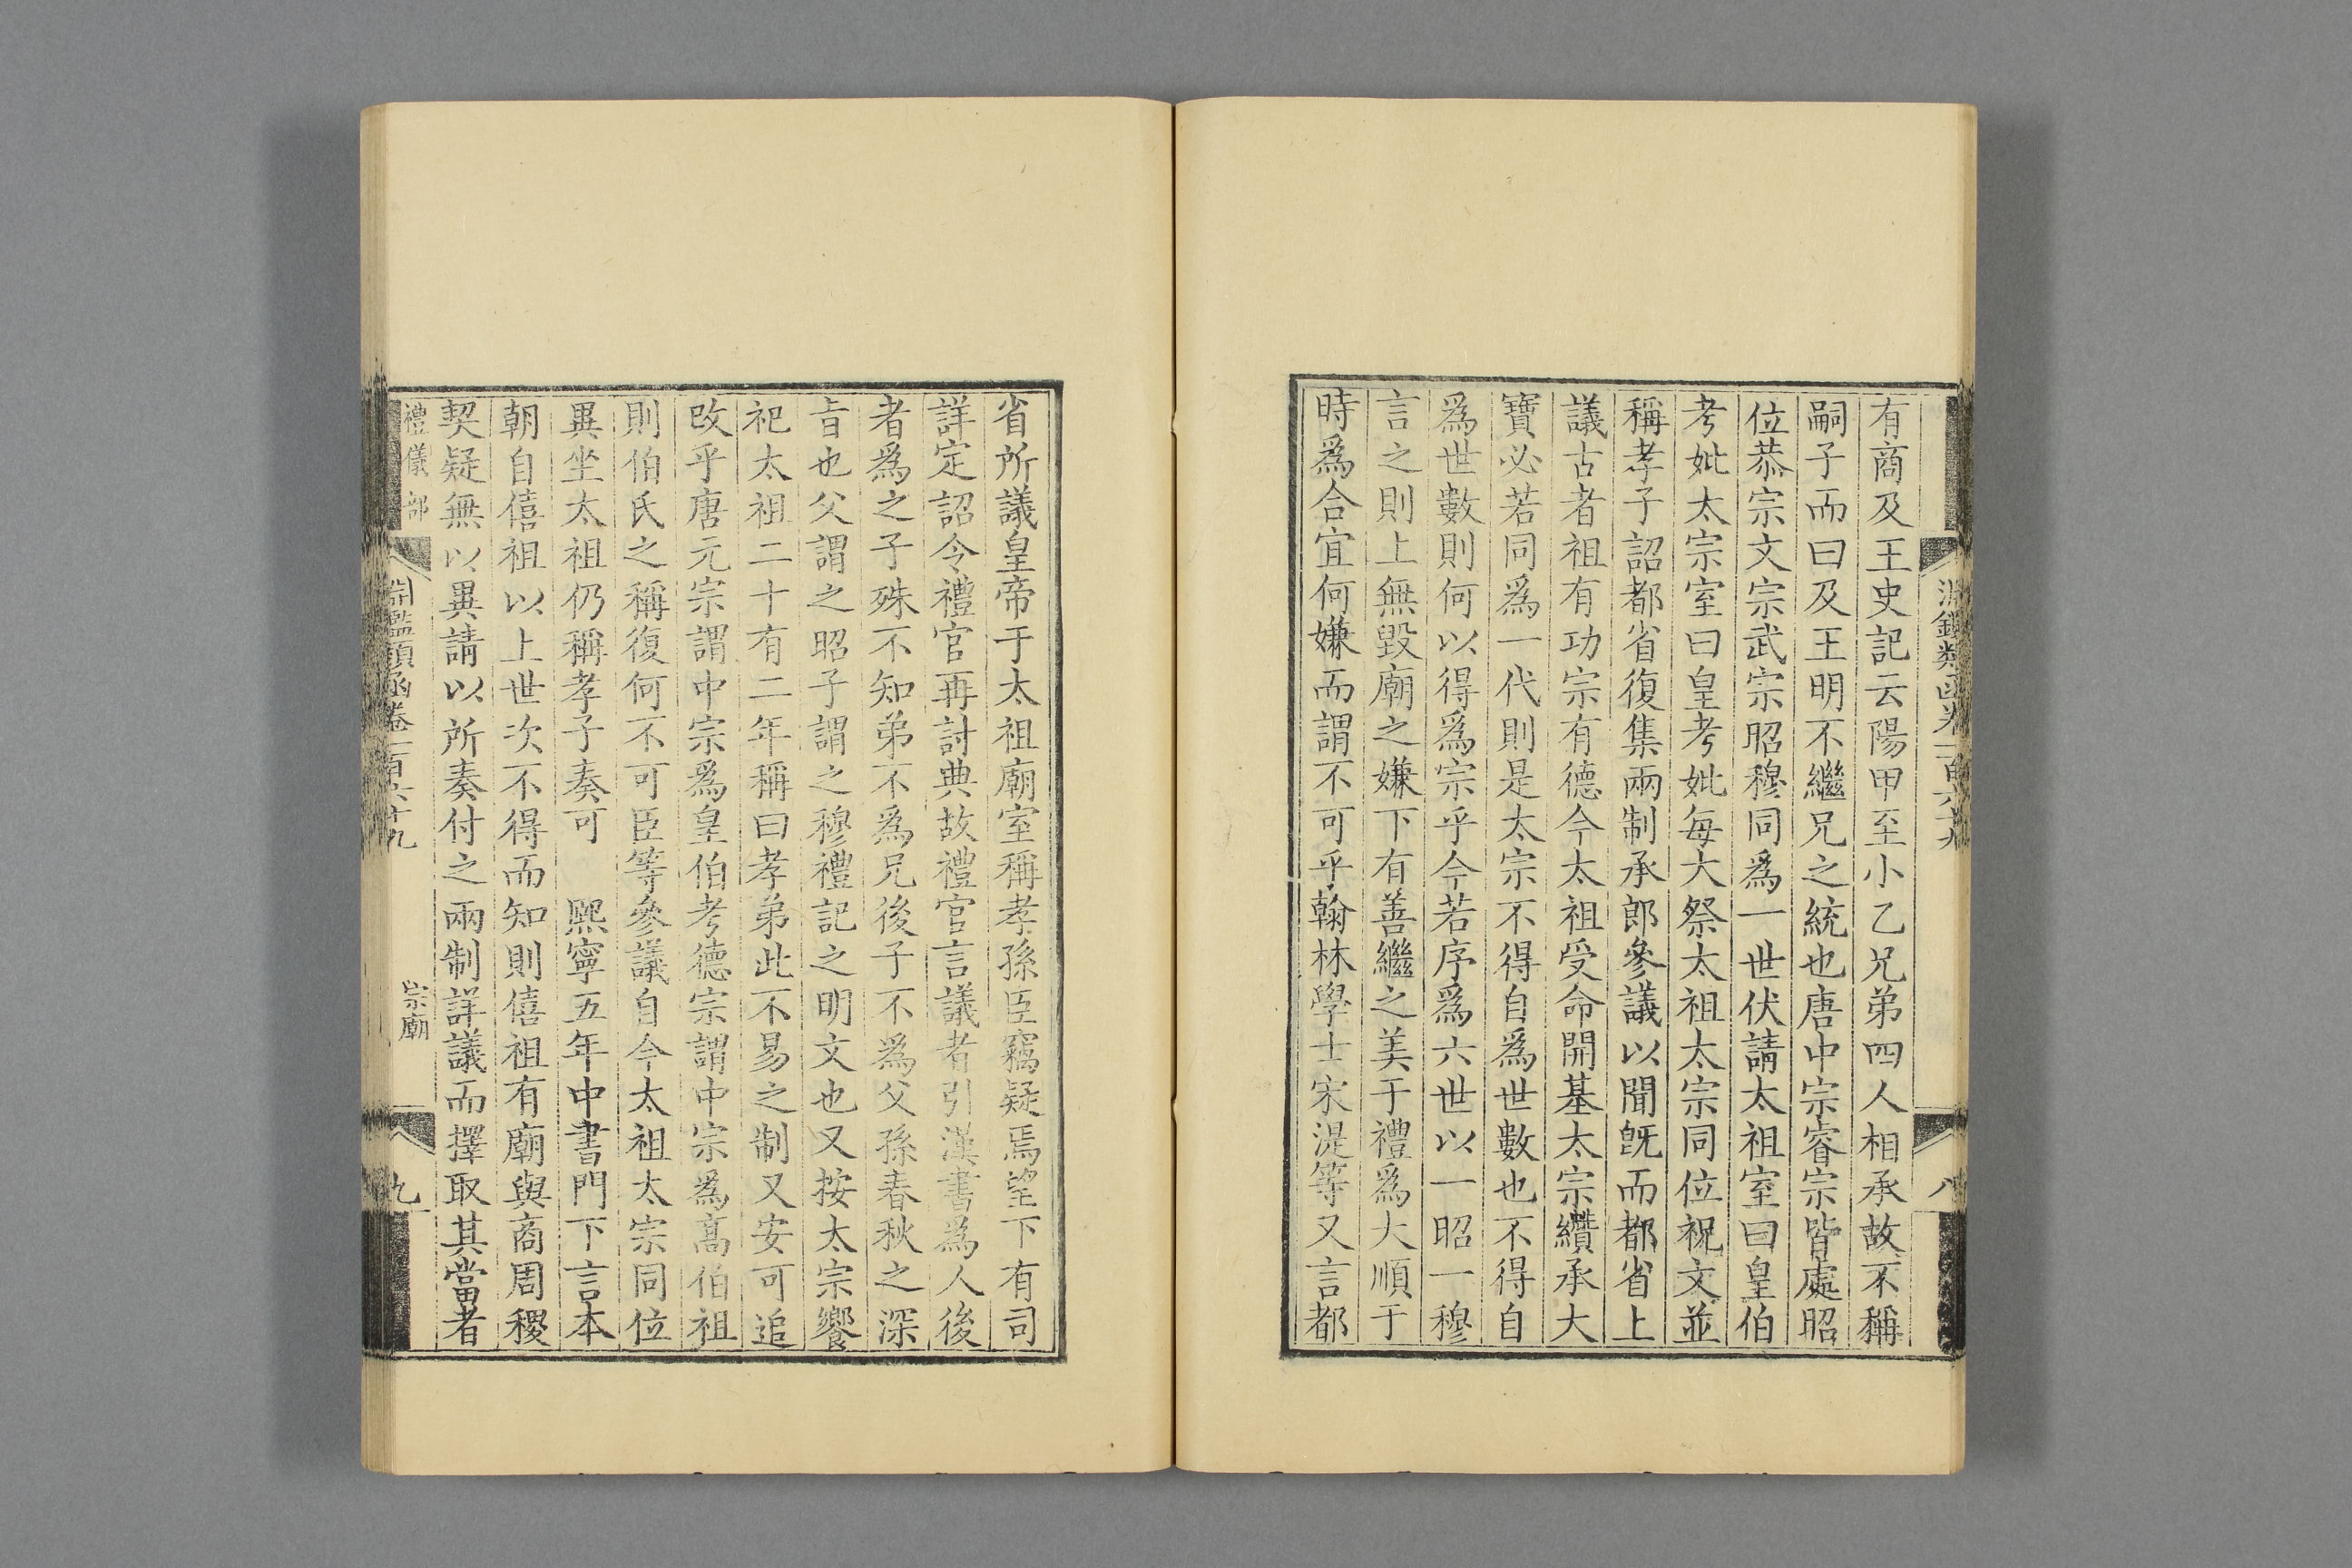 淵鑑類函卷一百六十九
八
有商及王史記云陽甲至小乙兄弟四人相承故不稱
嗣子而曰及王明不繼兄之統也唐中宗睿宗皆處昭
位恭宗文宗武宗昭穆同爲一世伏請太祖室曰皇伯
考妣太宗室曰皇考妣每大祭太祖太宗同位祝文並
稱孝子詔都省復集兩制承郎參議以聞旣而都省上
議古者祖有功宗有德今太祖受命開基太宗纘承大
寶必若同爲一代則是太宗不得自爲世數也不得自
爲世數則何以得爲宗乎今若序爲六世以一昭一穆
言之則上無毀廟之嫌下有善繼之美于禮爲大順于
時爲合宜何嫌而謂不可乎翰林學士宋湜等又言都
省所議皇帝于太祖廟室稱孝孫臣竊疑焉望下有司
詳定詔令禮官再討典故禮官言議者引漢書爲人後
者爲之子殊不知弟不爲兄後子不爲父孫春秋之深
旨也父謂之昭子謂之穆禮記之明文也又按太宗饗
祀太祖二十有二年稱曰孝弟此不易之制又安可追
改乎唐元宗謂中宗爲皇伯考德宗謂中宗爲高伯祖
則伯氏之稱復何不可臣等參議自今太祖太宗同位
異坐太祖仍稱孝子奏可　熙寧五年中書門下言本
朝自僖祖以上世次不得而知則僖祖有廟與商周稷
契疑無以異請以所奏付之兩制詳議而擇取其當者
禮儀部
淵鑑類函卷一百六十九
宗廟
九